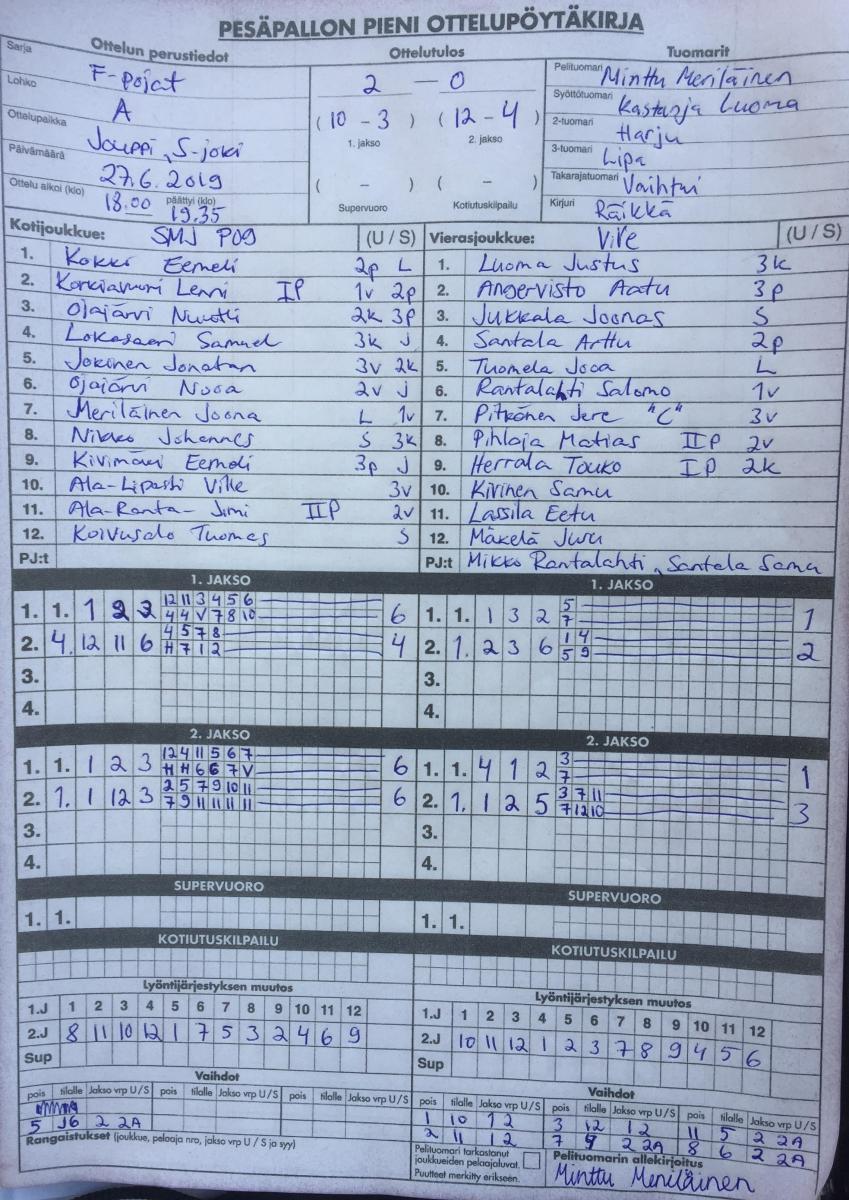 PESÄPALLON PIENI OTTELUPÖYTÄKIRJA
Ottelun perustiedot
Ottelutulos
Tuomarit
Sarja F-Pojat
Lohko A
Ottelupaikka Jouppi, S-joki
Päivämäärä 27.6.2019
Ottelu alkoi (klo) 18.00 päättyi (klo) 19.35
2 — 0
( 10 - 3 ) ( 12 - 4 )
1. jakso 2. jakso
( - ) ( - )
Supervuoro Kotiutuskilpailu
Pelituomari Minttu Meriläinen
Syöttötuomari Kastarja Luoma
2-tuomari Harju
3-tuomari Lipa
Takarajatuomari Vaihtui
Kirjuri Räikkä
Kotijoukkue: SMJ P09 (U / S)
1. Kokki Eemeli 2p L
2. Korkiavuori Lenni IP 1v 2p
3. Ojajärvi Nuutti 2k 3p
4. Lokasaari Samuel 3k J
5. Jokinen Jonatan 3v 2k
6. Ojajärvi Nooa 2v J
7. Meriläinen Joona L 1v
8. Nikko Johannes S 3k
9. Kivimäki Eemeli 3p J
10. Ala-Lipasti Ville 3v
11. Ala-Ranta- Jimi IIP 2v
12. Koivusalo Tuomas S
PJ:t
Vierasjoukkue: ViVe (U / S)
1. Luoma Justus 3k
2. Angervisto Aatu 3p
3. Jukkala Joonas S
4. Santala Arttu 2p
5. Tuomela Jooa L
6. Rantalahti Salomo 1v
7. Pitkänen Jere "C" 3v
8. Pihlaja Matias IIP 2v
9. Herrala Touko IP 2k
10. Kivinen Samu
11. Lassila Eetu
12. Mäkelä Juru
PJ:t Mikko Rantalahti, Santala Samu
1. JAKSO
1. 1. 1 2 2 12 11 3 4 5 6 6
4 4 V 7 8 10
2. 4. 12 11 6 4 5 7 8 4
H 7 1 2
3.
4.
1. JAKSO
1. 1. 1 3 2 5 1
7
2. 1. 2 3 6 1 4 2
5 9
3.
4.
2. JAKSO
1. 1. 1 2 3 12 4 11 5 6 7 6
H H 6 6 7 V
2. 1. 1 12 3 2 5 7 9 10 11 6
7 9 11 11 11 11
3.
4.
2. JAKSO
1. 1. 4 1 2 3 1
7
2. 1. 1 2 5 3 7 11 3
7 12 10
3.
4.
SUPERVUORO
1. 1.
SUPERVUORO
1. 1.
KOTIUTUSKILPAILU
KOTIUTUSKILPAILU
Lyöntijärjestyksen muutos
1.J 1 2 3 4 5 6 7 8 9 10 11 12
2.J 8 11 10 12 1 7 5 3 2 4 6 9
Sup
Lyöntijärjestyksen muutos
1.J 1 2 3 4 5 6 7 8 9 10 11 12
2.J 10 11 12 1 2 3 7 8 9 4 5 6
Sup
Vaihdot
pois tilalle Jakso vrp U/S pois tilalle Jakso vrp U/S pois tilalle Jakso vrp U/S
5 J6 2 2A
Rangaistukset (joukkue, pelaaja nro, jakso vrp U / S ja syy)
Vaihdot
pois tilalle Jakso vrp U/S pois tilalle Jakso vrp U/S pois tilalle Jakso vrp U/S
1 10 1 2 3 12 1 2 11 5 2 2A
2 11 1 2 7 9 2 2A 8 6 2 2A
Pelituomari tarkastanut joukkueiden pelaajaluvat.
Puutteet merkitty erikseen.
Pelituomarin allekirjoitus
Minttu Meriläinen